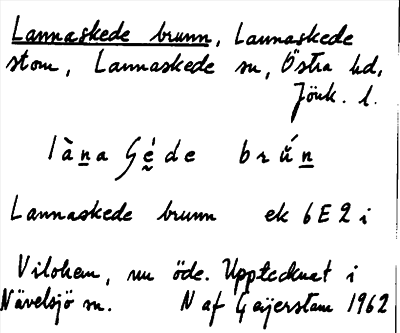 Lannaskede brunn, Lannaskede
stom, Lannaskede sn, Östra hd,
Jönk. l.
làna Gé̬de brún
Lannaskede brunn ek 6E2i
Vilohem, nu öde. Upptecknat i
Nävelsjö sn. N af Geijerstam 1962